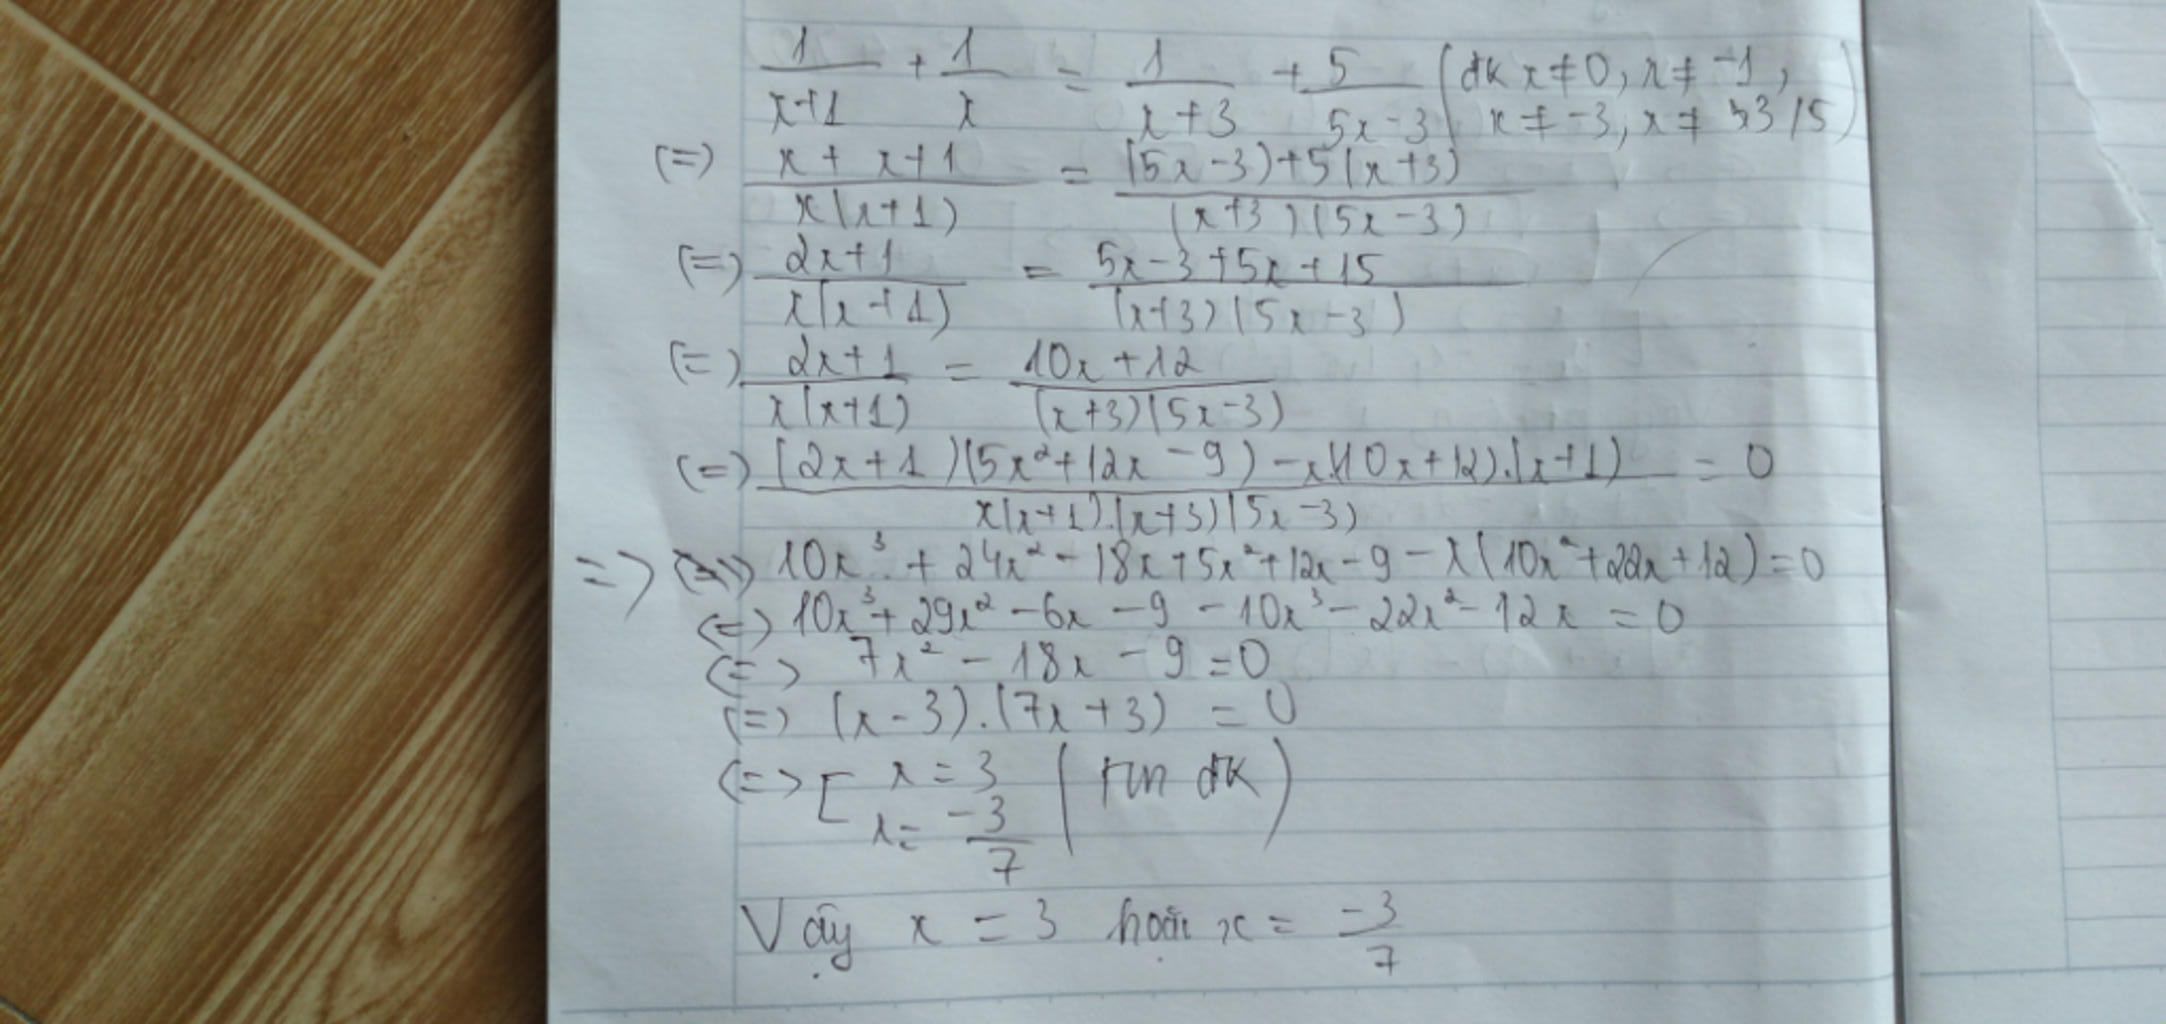 1/(x+1) + 1/x = 1/(x+3) + 5/(5x-3) (đk x≠0, x≠-1, x≠-3, x≠ 3/5)
(=) (x + x+1)/(x(x+1)) = ((5x-3)+5(x+3))/((x+3)(5x-3))
(=) (2x+1)/(x(x+1)) = (5x-3+5x+15)/((x+3)(5x-3))
(=) (2x+1)/(x(x+1)) = (10x+12)/((x+3)(5x-3))
(=) ((2x+1)(5x²+12x-9) - x.(10x+12).(x+1))/(x(x+1).(x+3)(5x-3)) = 0
=> 10x³ + 24x² - 18x + 5x² + 12x - 9 - x(10x²+22x+12) = 0
(=) 10x³ + 29x² - 6x - 9 - 10x³ - 22x² - 12x = 0
<=> 7x² - 18x - 9 = 0
(=) (x-3).(7x+3) = 0
<=> [ x = 3
x = -3/7 ( đk)
Vậy x = 3 hoặc x = -3/7